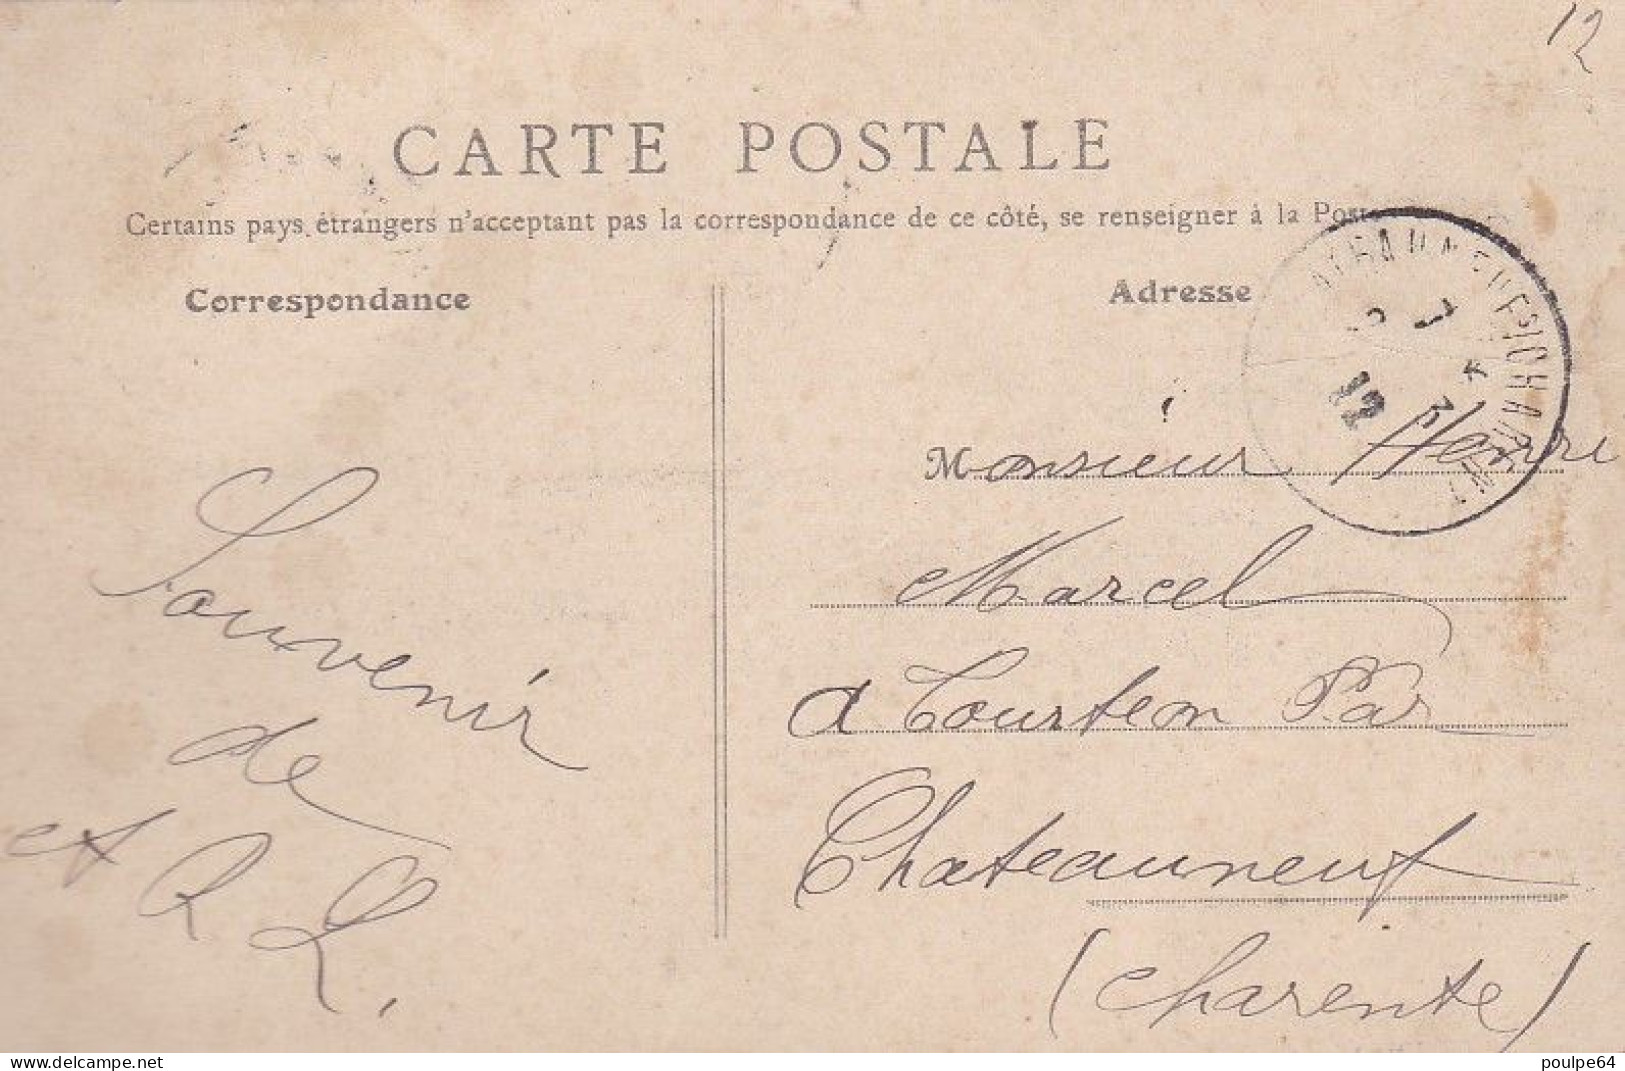 12
CARTE POSTALE
Certains pays étrangers n'acceptent pas la correspondance de ce côté, se renseigner à la Poste
Correspondance
Adresse
12
Monsieur Henri
Marcel
a Tourteon Par
Chateauneuf
(Charente)
Souvenir
de
R
L.
www.delcampe.net
poulpe64